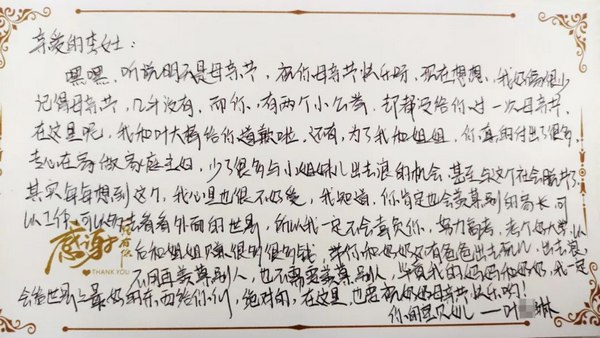 亲爱的李女士：
嘿嘿，听说明天是母亲节，祝你母亲节快乐呀，现在想想，我好像很少
记得母亲节，几乎没有，而你，有两个小公举，却都没给你过一次母亲节，
在这里呢，我和叶大桥给你道歉啦，还有，为了我和姐姐，你真的付出了很多，
专心在家做家庭主妇，少了很多与小姐妹儿出去浪的机会，甚至与这个社会脱节了，
其实每每想到这个，我心里也很不好受，我知道，你肯定也会羡慕别的家长，可
以工作，可以看看外面的世界，所以我一定不会辜负你，努力高考，考个好大学，以
后和姐姐赚很多很多钱，带你和奶奶还有爸爸出去玩儿，出去浪，
不用再羡慕别人，也不需要羡慕别人，当着我的妈妈和奶奶，我一定
会给世界上最好的东西给你们，绝对的，在这里，也要祝奶奶母亲节快乐哟！
你的宝贝女儿——叶琳
感谢有你
THANK YOU